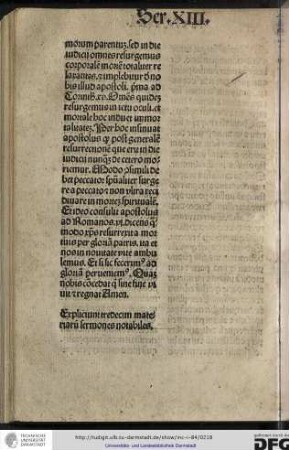 Ser. XIII.
morum parentuz. sed in die
iudicii omnes resurgemus
corporalē mortē totaliter re
laxantes. & implebitur ꝺ no
bis illud apostoli. pma ad
Corinth. xv. Omēs quidez
resurgemus in ictu oculi. et
mortale hoc induet immor
talitatez. Per hoc insinuat
apostolus ꝙ post generalē
resurrectionē que erit in die
iudicii nunꝙ de cetero mo
riemur. Modo psimili de
bet peccator spūaliter surge
re a peccato & non vltra reci
diuare in mortez spiritualē.
Et ideo consulit apostolus
ad Romanos. vi. dicens ꝙ
modo xps resurrexit a mor
tuis per gloriā patris. ita et
nos in nouitate vite ambu
lemus. Et si sic fecerimꝰ ad
gloriā perueniemꝰ. Quaz
nobis cōcedat qͥ sine fine vi
uit & regnat Amen.
Expliciunt tredecim mate
riarū sermones notabiles.
TECHNISCHE
UNIVERSITÄT
DARMSTADT
http://tudigit.ulb.tu-darmstadt.de/show/inc-ii-84/0218
Universitäts- und Landesbibliothek Darmstadt
gefördert durch die
DFG